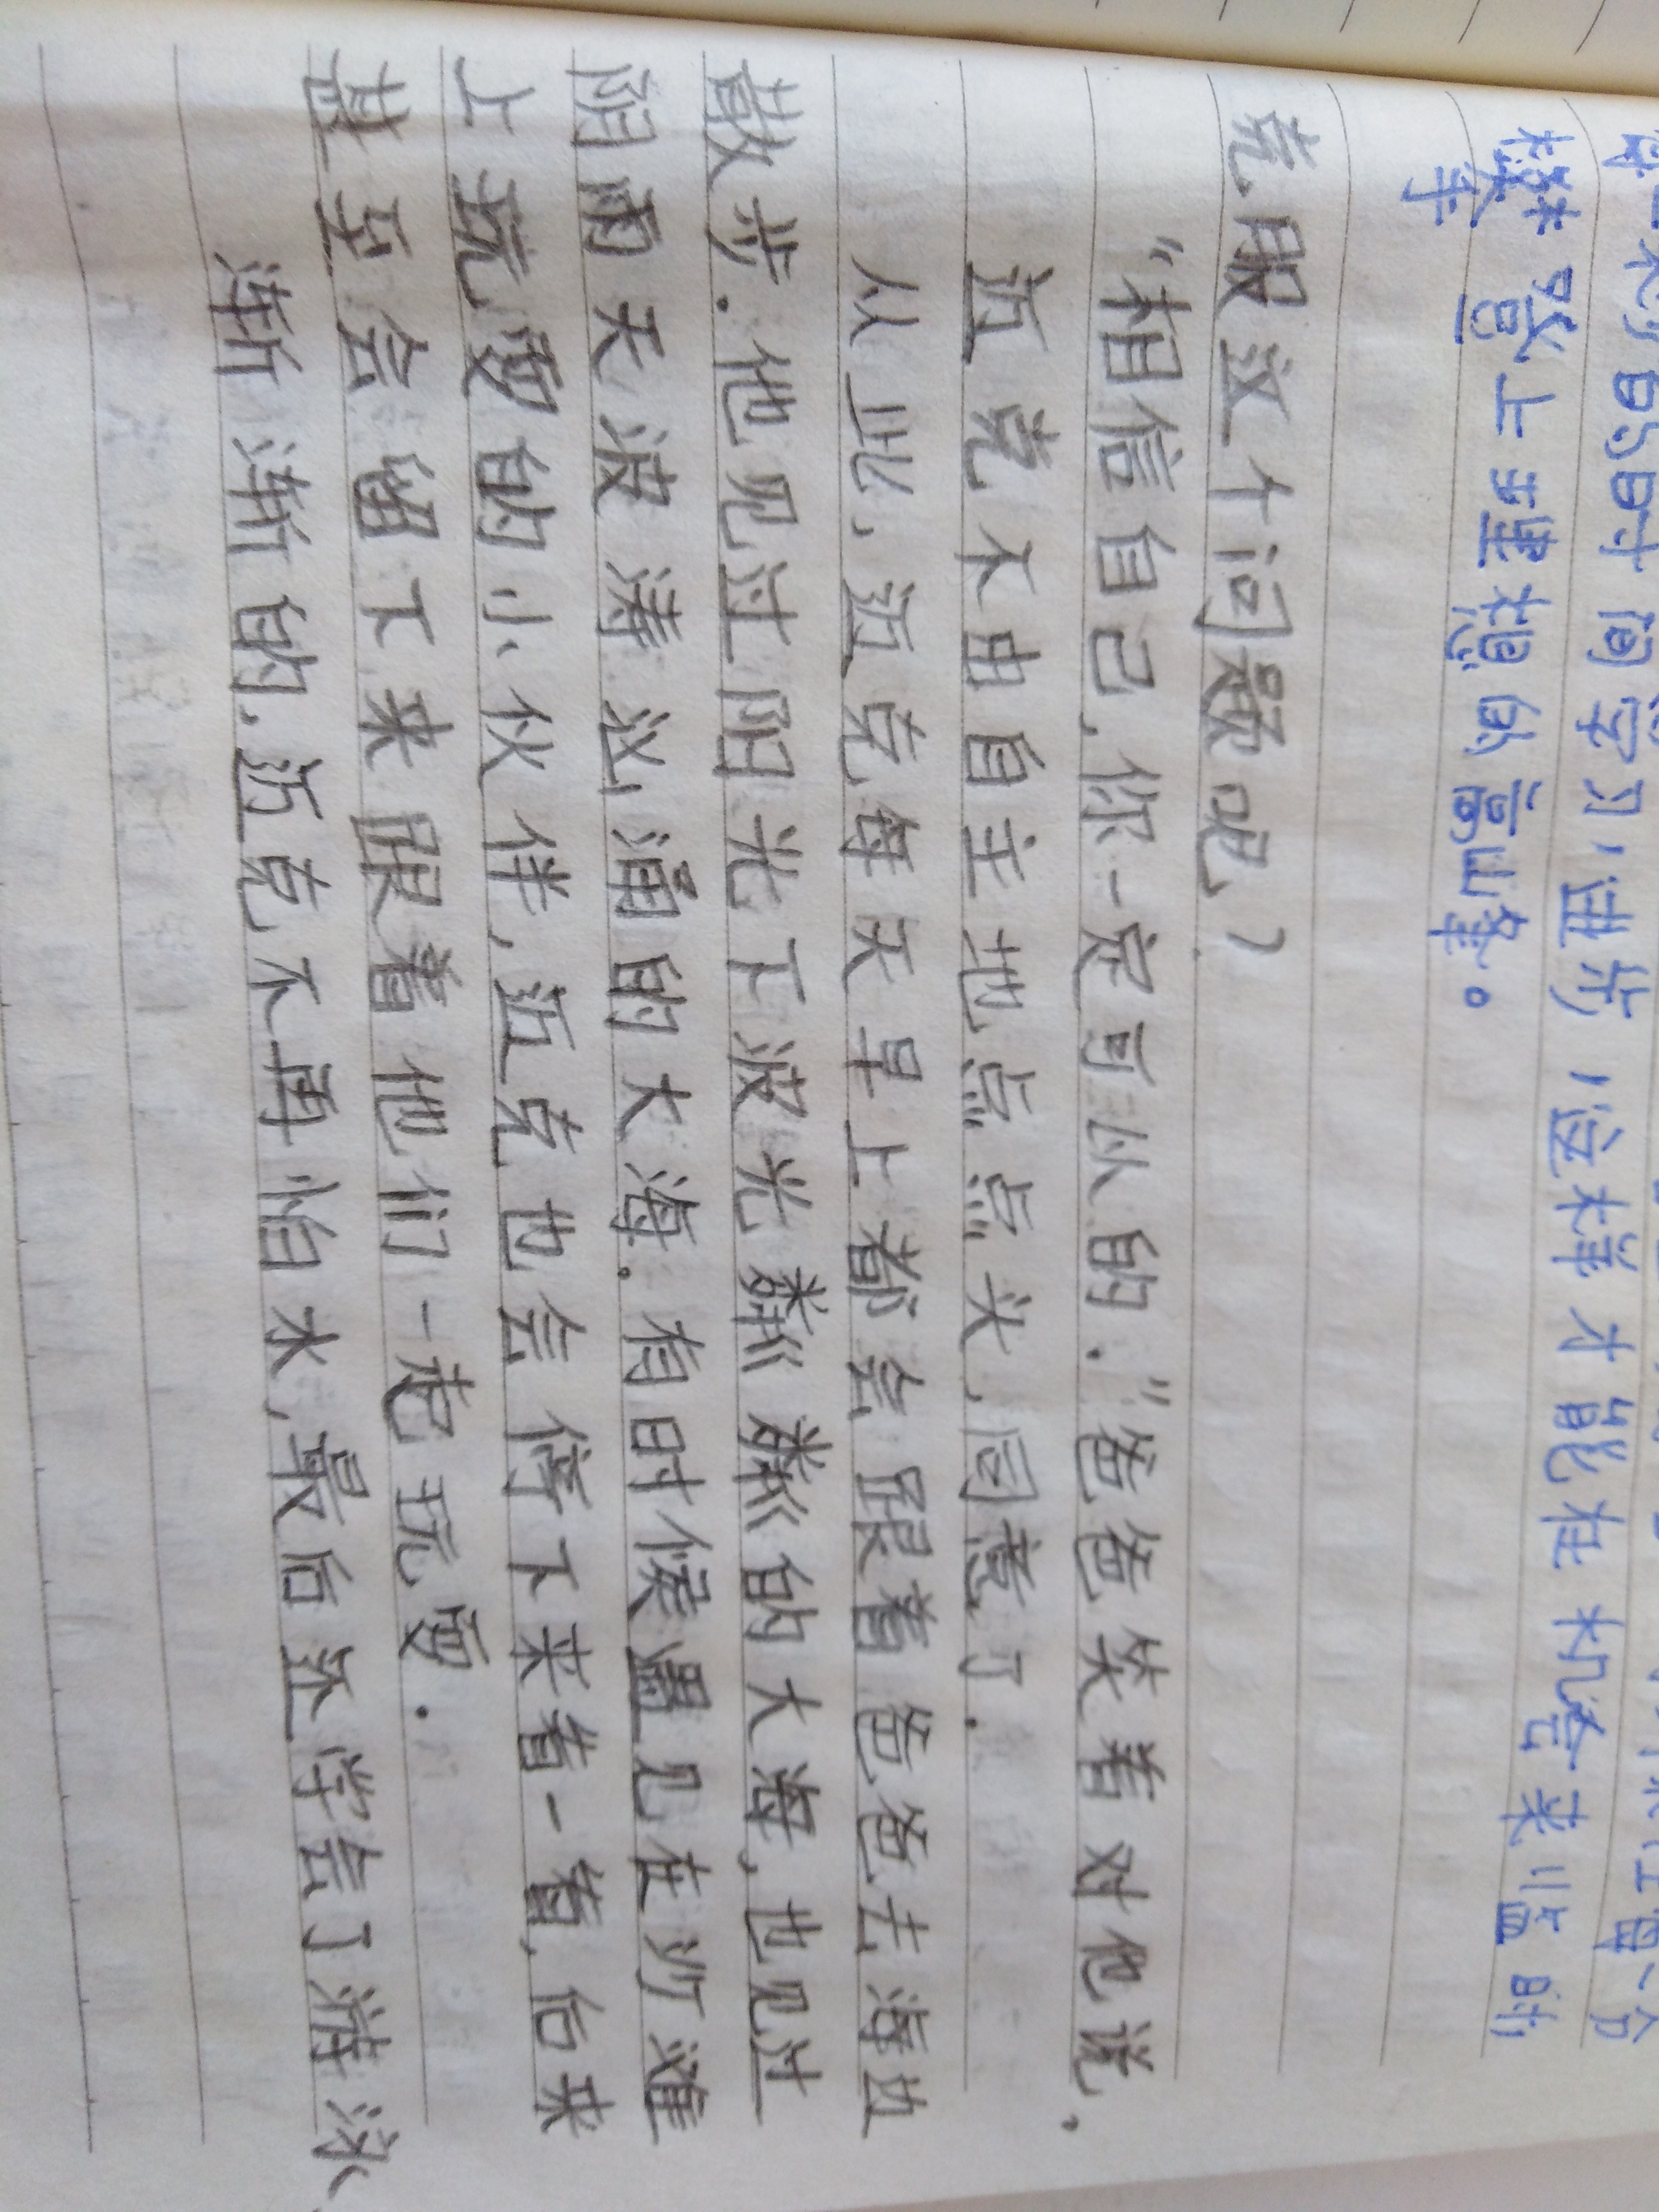 的时间学习，进步，这样才能在机会来临时
攀登上理想的高山峰。
克服这个问题呢？
“相信自己，你一定可以的．”爸爸笑着对他说．
迈克不由自主地点点头，同意了．
从此，迈克每天早上都会跟着爸爸去海边
散步．他见过阳光下波光粼粼的大海，也见过
阴雨天波涛汹涌的大海．有时候遇见在沙滩
上玩耍的小伙伴，迈克也会停下来看一看，后来
甚至会留下来跟着他们一起玩耍．
渐渐的，迈克不再怕水，最后还学会了游泳